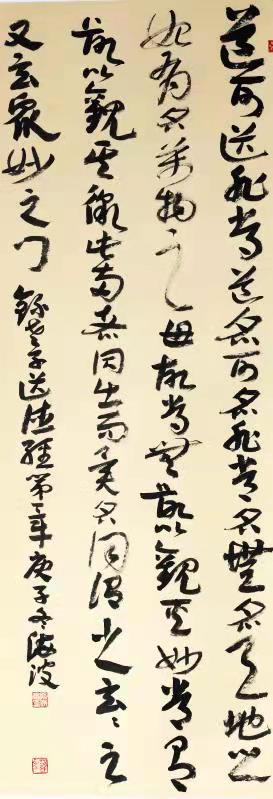 道可道非常道名可名非常名無名天地之
始有名萬物之母故常無欲以觀其妙常有
欲以觀其徼此兩者同出而異名同謂之玄〻之
又玄眾妙之门 錄老子道德經第一章庚子冬海波